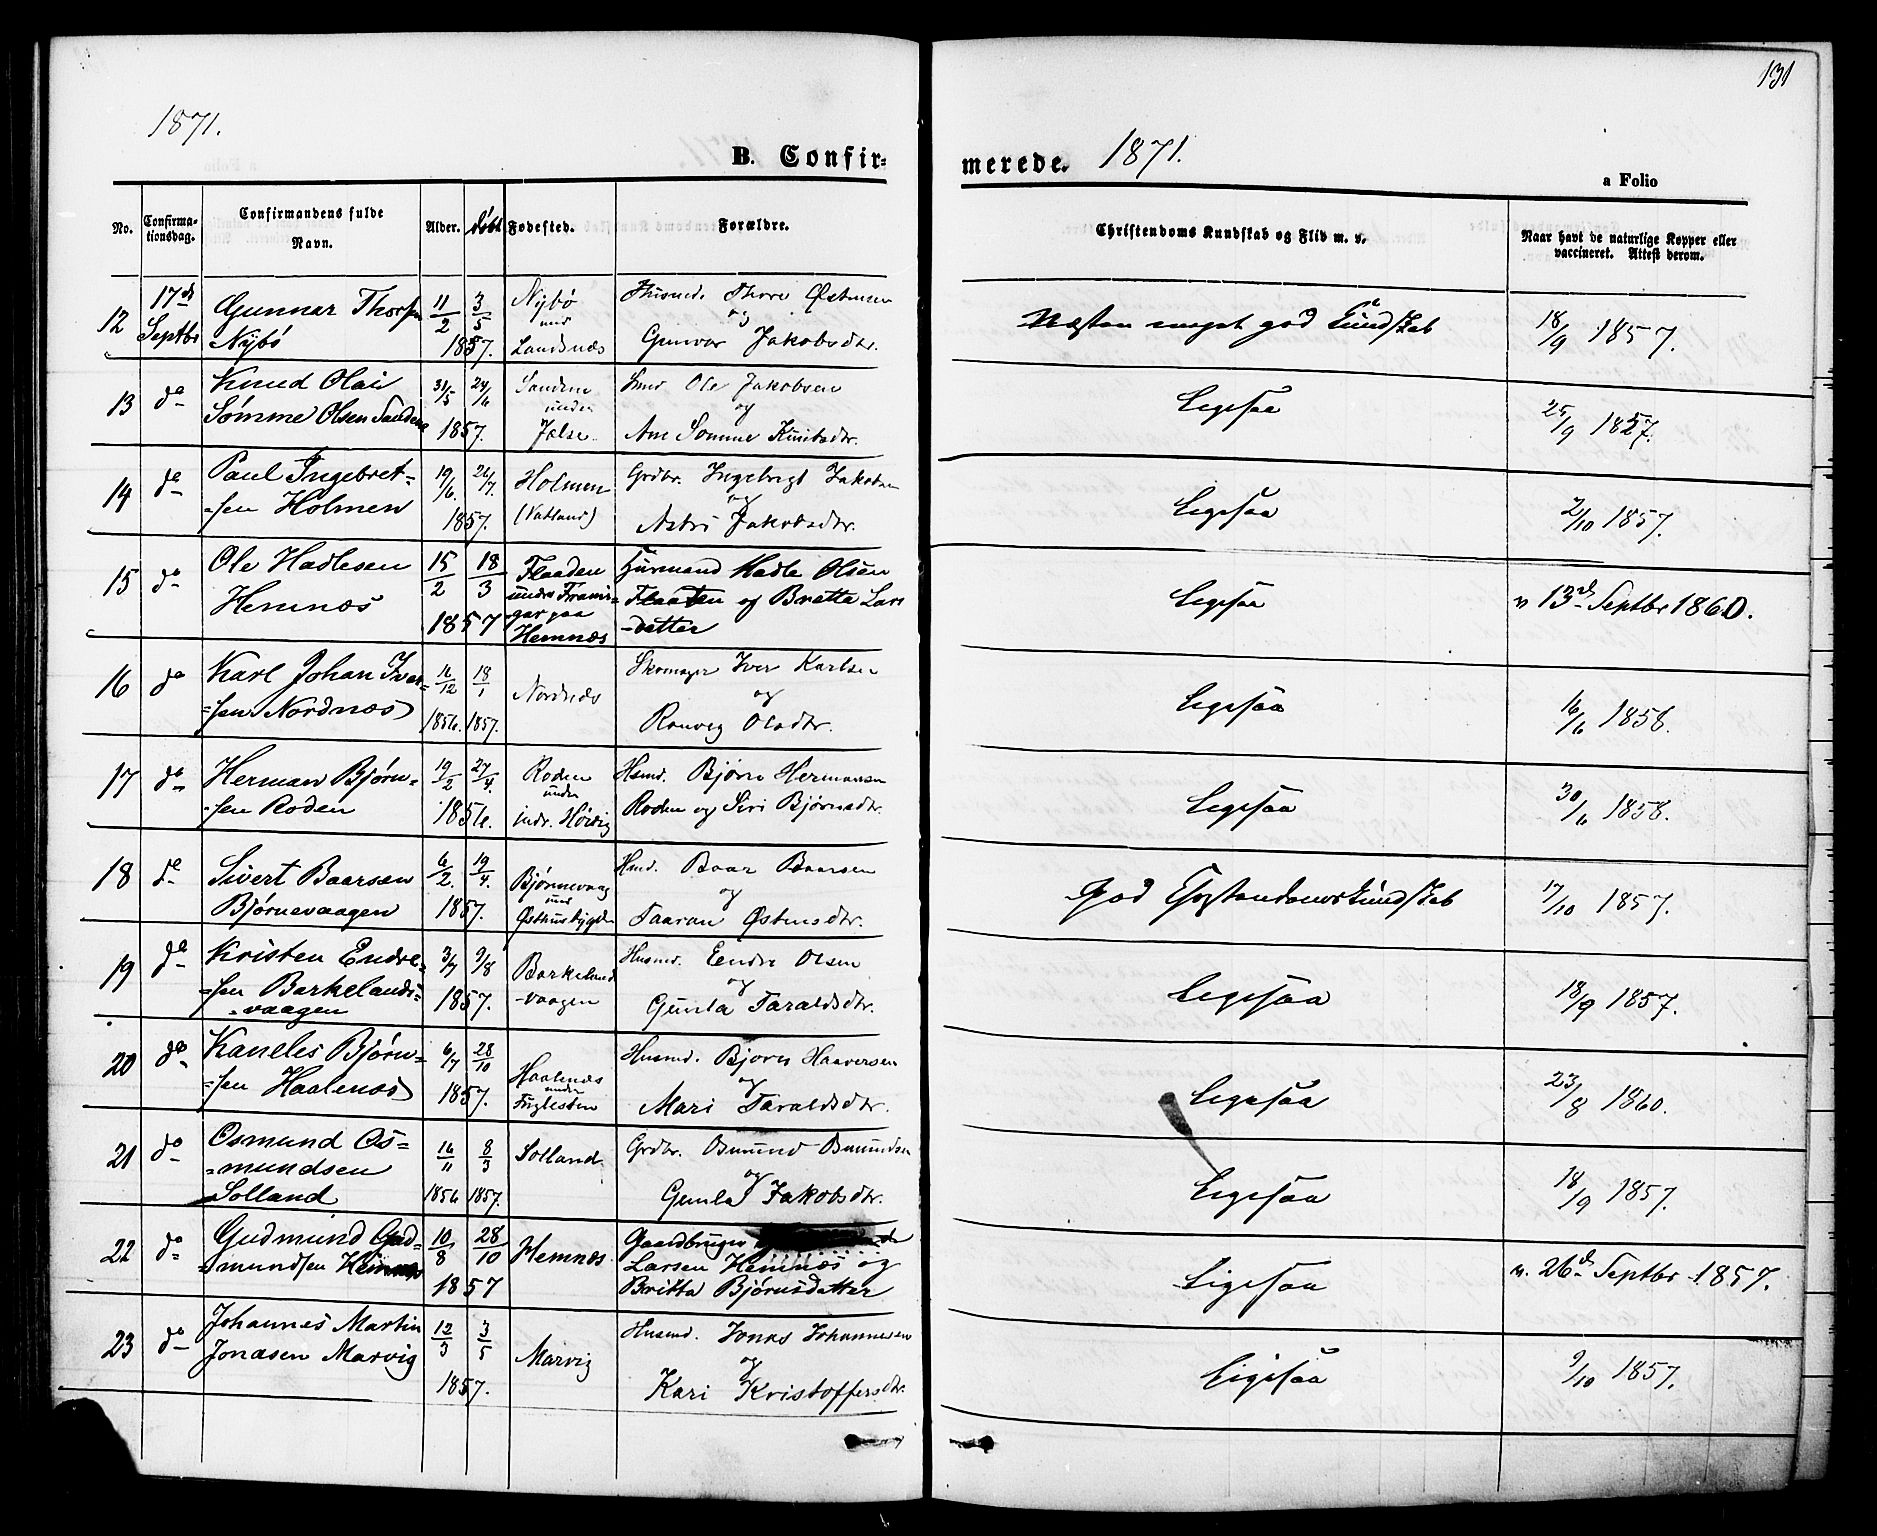 131
1871.
B. Confir=
merede. 1871.
a Folio
No. Confirma-tionsdag. Confirmandens fulde Navn. Alder. døbt Fødested. Forældre. Christendoms Kundskab og Flid m. v. Naar havt de naturlige Kopper eller vaccineret. Attest derom.
12 17de Septbr Gunnar Thors Nybø 11/2 3/5 1857. Nybø und Landsnæs Husmd. Thore Østensen og Gunvor Jakobsdtr. Næsten meget god Kundskab 18/9 1857.
13 do Knud Olai Sømme Olsen Sandene 31/5 24/6 1857. Sandene under Jelse. Smd Ole Jakobsen og Ane Somme Knutsdtr. Ligesaa 25/9 1857.
14 do Paul Ingebret=sen Holmen 19/6. 26/7. 1857. Holmen (Natland) Grdbr. Ingebrigt Jakobsen og Astri Jakobsdtr. Ligesaa 2/10 1857.
15 do Ole Hadlesen Hemnæs 15/2 18/3 1857 Flaaden under gar paa Hemnæs Husmand Hadle Olsen Flaaten og Britta Lars-datter Ligesaa v 13de Septbr 1860.
16 do Karl Johan Iver=sen Nordnæs 16/12 1856. 18/1 1857. Nordnæs Skomager Iver Karlsen og Ranveg Olsdtr. Ligesaa 16/6 1858.
17 do Herman Bjørn=sen Roden 19/2 27/4. 1856. Roden under indr. Hørvig Hsmd. Bjørn Hermansen Roden og Siri Bjørnsdtr. Ligesaa 30/6 1858.
18 do Sivert Baarsen Bjørnevaagen 6/2. 19/4. 1857. Bjørnevaag und Østhusbygden Hsmd. Baar Baarsen og Taaran Østensdtr. God Christendomskundskab 17/10 1857.
19 do Kristen Endre=sen Barkelands=vaagen 3/7 9/8 1857. Barkeland-vaagen Husmd. Endre Olsen og Gunla Taraldsdtr. Ligesaa 18/9 1857.
20 do Kaneles Bjørn=sen Haalenæs 6/7 28/10 1857. Haalenæs under Fuglesten Husmd. Bjørn Haaversen og Mari Taraldsdtr. Ligesaa 23/8 1860.
21 do Osmund Os=mundsen Solland 16/11 1856 8/3 1857. Solland. Grdbr. Osmund Osmundsen og Gunla Jakobsdtr. Ligesaa 18/9 1857.
22 do Gudmund Gud=mundsen Hemnæs 10/8 28/10 1857 Hemnæs. Gaardbruger Larsen Hemnæs og Britta Bjørnsdatter Ligesaa v. 26de Septbr 1857.
23 do Johannes Martin Jonasen Marvig 12/3 3/5 1857. Marvig Husmd. Jonas Johannesen og Kari Kristoffersdtr. Ligesaa 9/10 1857.